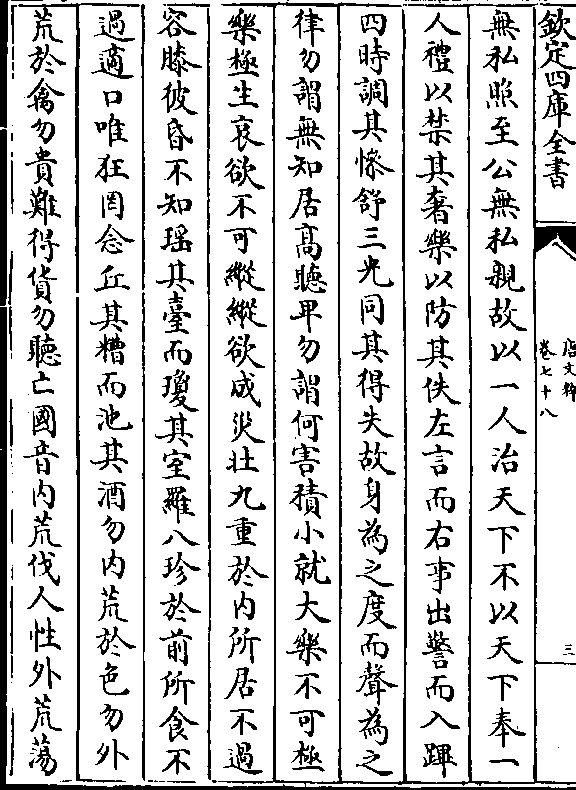 欽定四庫全書
唐文粹
卷七十八
三
無私照至公無私親故以一人治天下不以天下奉一
人禮以禁其奢樂以防其佚左言而右事出警而入蹕
四時調其慘舒三光同其得失故身為之度而聲為之
律勿謂無知居髙聽卑勿謂何害積小就大樂不可極
樂極生哀欲不可縱縱欲成災壯九重於内所居不過
容膝彼昏不知瑶其臺而瓊其室羅八珍於前所食不
過適口唯狂罔念丘其糟而池其酒勿内荒於色勿外
荒於禽勿貴難得貨勿聽亡國音内荒伐人性外荒蕩